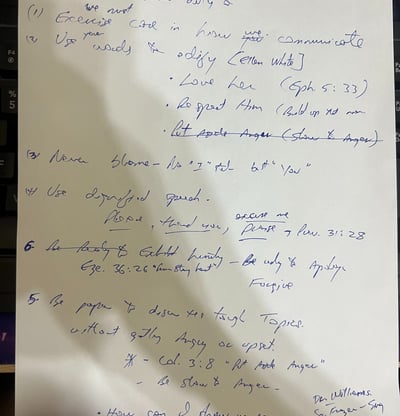 we must
(1) Exercise care in how we communicate
(2) Use your words to edify [Ellen White]
• Love her (Eph 5:33)
• Respect Him (Build up not
• Put Aside Anger (Slow to Anger)
(3) Never blame – No "I" but "You"
(4) Use dignified speech.
excuse me
Please, thank you, Prov. 31:28
6. Be Ready to Exhibit humility – Be ready to Apologize
Eze. 36:26 Forgive
5. Be to discuss tough Topics
without getting Angry or upset.
* – Col. 3:8 "Put Aside Anger"
– Be Slow to Anger.
Dr. Williams.
• How can I